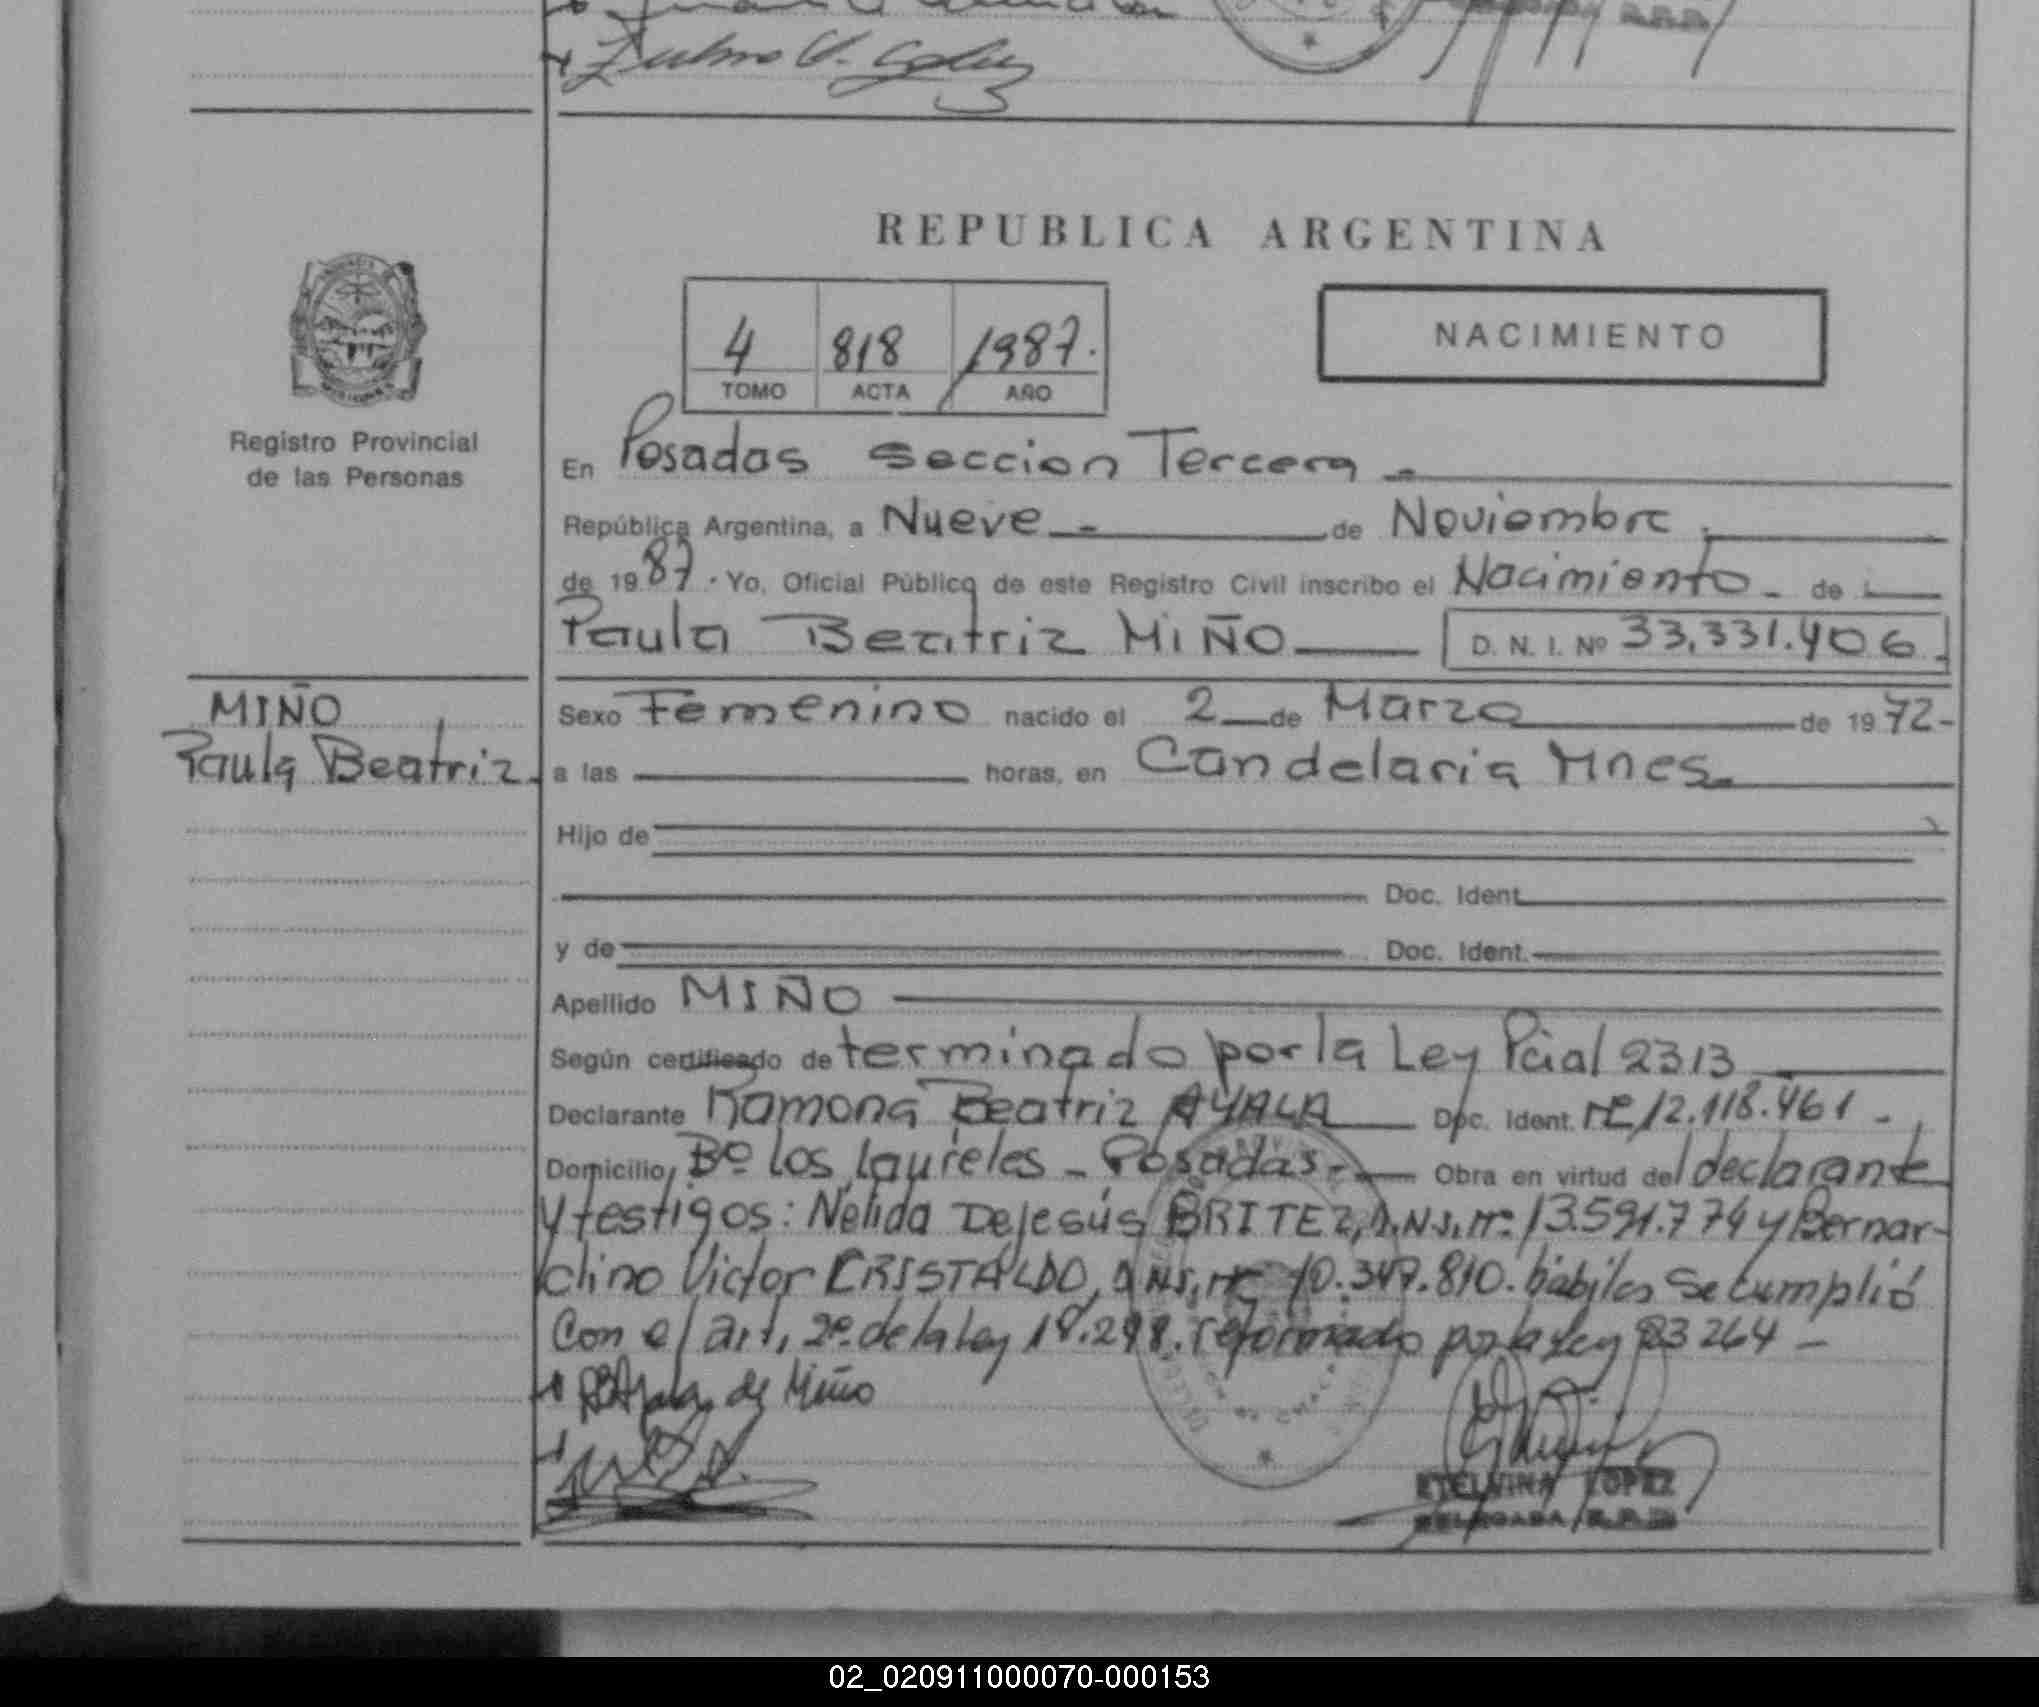 Zulma V.
REPUBLICA ARGENTINA
4 818 1987.
TOMO ACTA AÑO
NACIMIENTO
Registro Provincial
de las Personas
En Posadas Seccion Tercera -
República Argentina, a Nueve - de Noviembre
de 1987. Yo, Oficial Público de este Registro Civil inscribo el Nacimiento - de
Paula Beatriz MIÑO D. N. I. Nº 33.331.406.-
MIÑO
Paula Beatriz.
Sexo Femenino nacido el 2 de Marzo de 1972-
a las horas, en Candelaria Mnes.
Hijo de
Doc. Ident.
y de Doc. Ident.
Apellido MIÑO
Según certificado de terminado por la Ley Pcial 2313
Declarante Ramona Beatriz AYALA Doc. Ident. Nº 12.118.461 -
Domicilio Bº los laureles - Posadas - Obra en virtud del declarante
y testigos: Nélida DeJesús BRITEZ, D.N.I. Nº 13.591.774 y Bernar-
dino Victor CRISTALDO, D.N.I. Nº 10.347.810. hábiles Se cumplió
Con el art. 2º de la Ley 18.248. reformado por la Ley 23264 -
de Miño
ETELVINA LOPEZ
DELEGADA R.P.P.
02_020911000070-000153